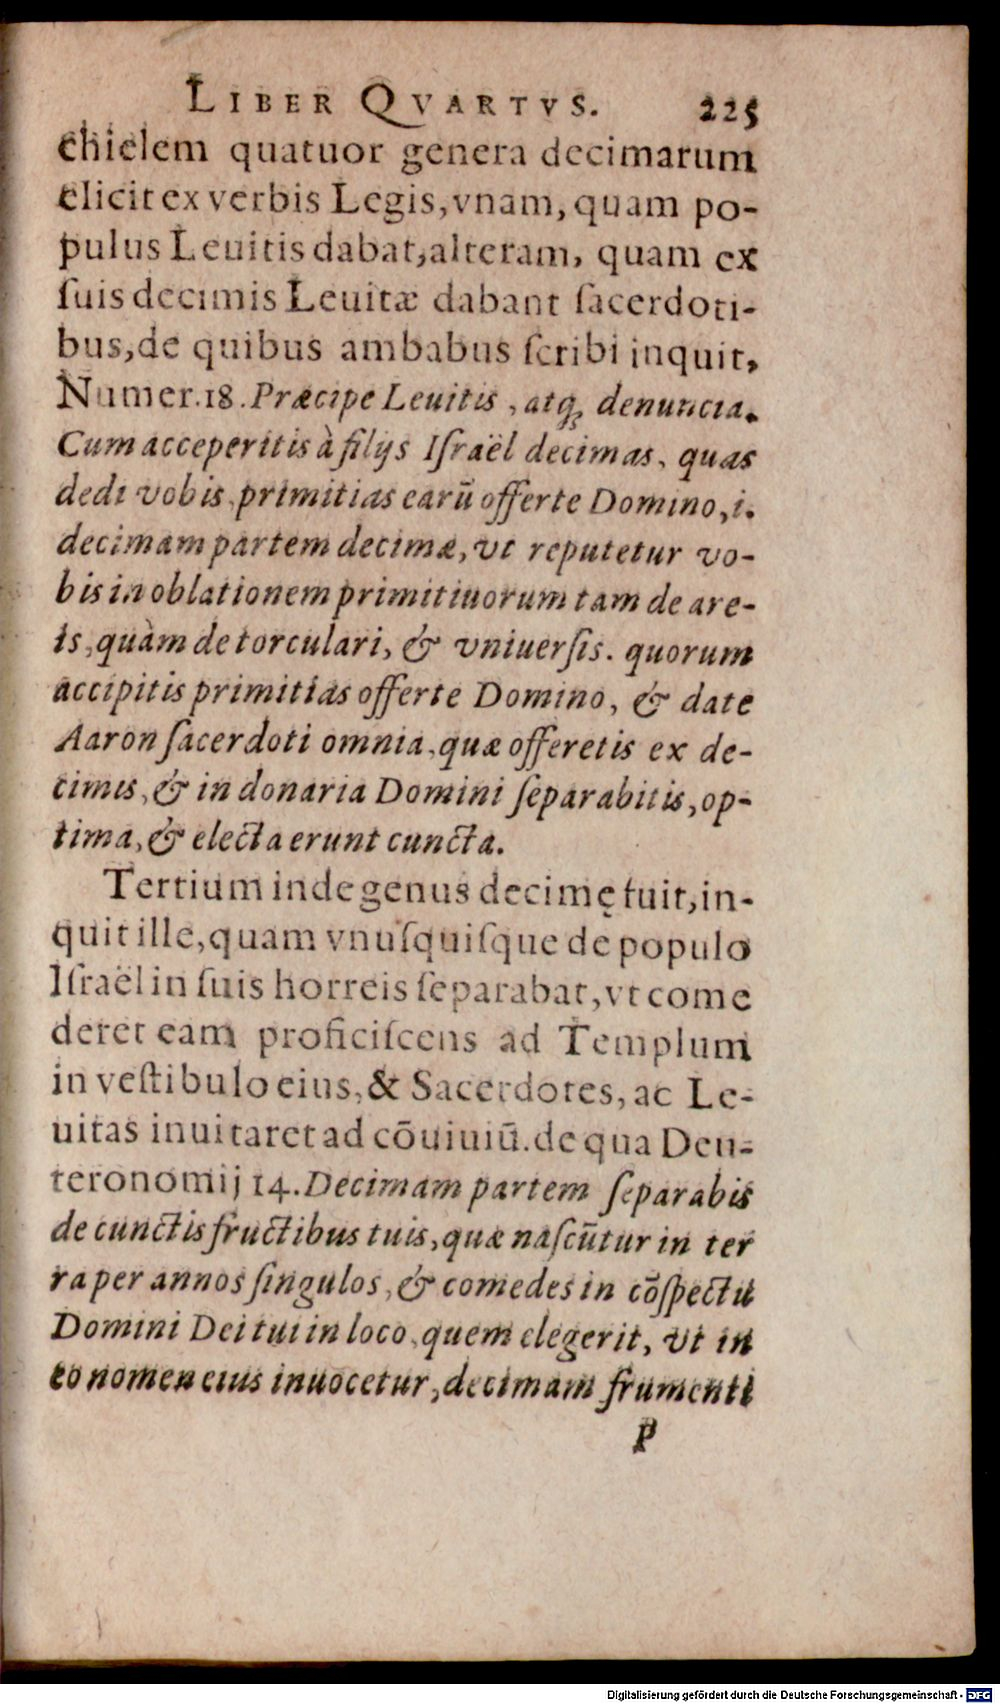 LIBER QVARTVS. 225
chielem quatuor genera decimarum
elicit ex verbis Legis, vnam, quam po-
pulus Leuitis dabat, alteram, quam ex
ſuis decimis Leuitæ dabant ſacerdoti-
bus, de quibus ambabus ſcribi inquit,
Numer. 18. Præcipe Leuitis, atq; denuncia.
Cum acceperitis à filijs Iſraël decimas, quas
dedi vobis, primitias earū offerte Domino, i.
decimam partem decimæ, vt reputetur vo-
bis in oblationem primitiuorum tam de are-
is, quàm de torculari, & vniuerſis. quorum
accipitis primitias offerte Domino, & date
Aaron ſacerdoti omnia, quæ offeretis ex de-
cimis, & in donaria Domini ſeparabitis, op-
tima, & electa erunt cuncta.
Tertium inde genus decimę fuit, in-
quit ille, quam vnuſquiſque de populo
Iſraël in ſuis horreis ſeparabat, vt come
deret eam proficiſcens ad Templum
in veſtibulo eius, & Sacerdotes, ac Le-
uitas inuitaret ad cōuiuiū. de qua Deu-
teronomij 14. Decimam partem ſeparabis
de cunctis fructibus tuis, quæ naſcūtur in ter
ra per annos ſingulos, & comedes in cōſpectu
Domini Dei tui in loco, quem elegerit, vt in
eo nomen eius inuocetur, decimam frumenti
P
Digitalisierung gefördert durch die Deutsche Forschungsgemeinschaft - DFG